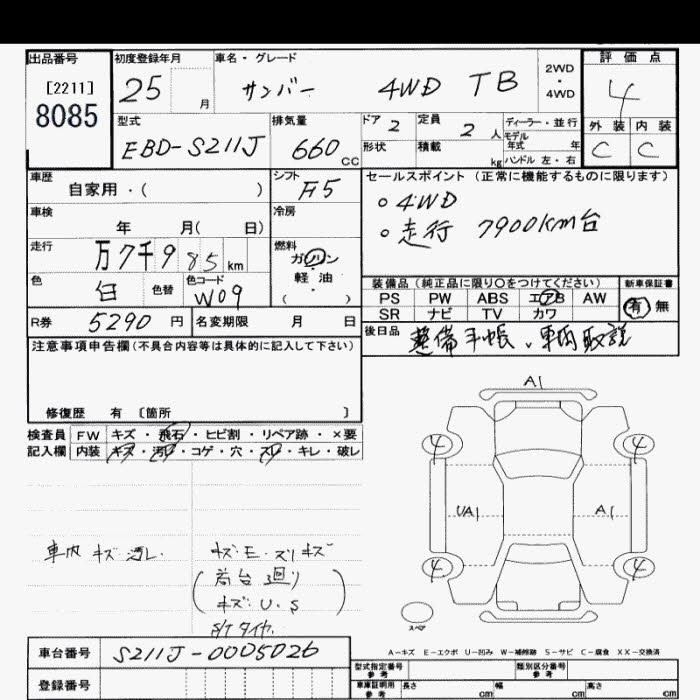 出品番号 初度登録年月 車名・グレード 評価点
[2211] 25 月 サンバー 4WD TB 2WD・4WD 4
8085
型式 排気量 ドア 2 定員 2 人 ディーラー・並行 外装 内装
EBD-S211J 660 cc 形状 積載 kg モデル年式 年 C C
ハンドル 左・右
車歴 シフト セールスポイント (正常に機能するものに限ります)
自家用・( ) F5 ○ 4WD
車検 冷房 ○ 走行 7900km台
年 月( 日)
走行 燃料
万7千985 km ガソリン・軽油
( )
色 色替 色コード 装備品 (純正品に限り○をつけてください) 新車保証書
白 W09 PS PW ABS エアB AW 有 無
SR ナビ TV カワ
R券 5290 円 名変期限 月 日 後日品 整備手帳、車両取説
注意事項申告欄(不具合内容等は具体的に記入して下さい)
修復歴 有 〔箇所 〕
検査員 FW キズ・飛石・ヒビ割・リペア跡・×要
記入欄 内装 キズ・汚レ・コゲ・穴・スレ・キレ・破レ
A1
4 4
UA1 A1
4 4
スペア
車内 キズ 汚レ. キズ・E・スリキズ
(荷台廻り
キズ・U・S)
S/Tタイヤ
A-キズ E-エクボ U-凹み W-補修跡 S-サビ C-腐食 XX-交換済
車台番号 S211J-0005026
登録番号
型式指定番号 参考 類別区分番号 参考
車庫証明用 参考 長さ cm 幅 cm 高さ cm